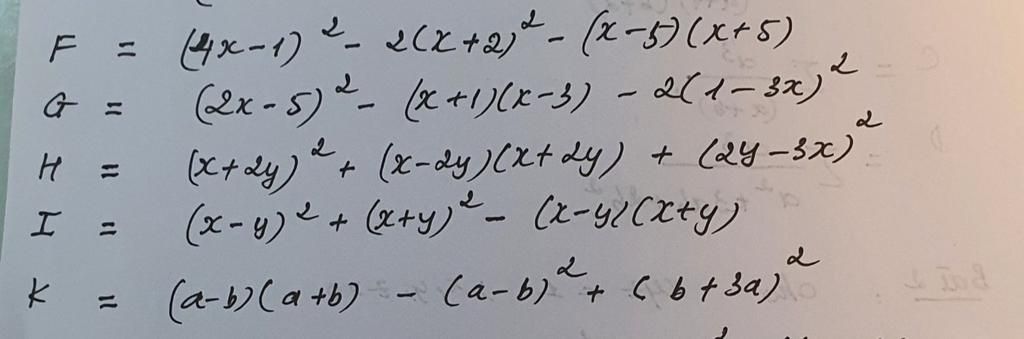 F = (4x-1)² - 2(x+2)² - (x-5)(x+5)
G = (2x-5)² - (x+1)(x-3) - 2(1-3x)²
H = (x+2y)² + (x-2y)(x+2y) + (2y-3x)²
I = (x-y)² + (x+y)² - (x-y)(x+y)
K = (a-b)(a+b) - (a-b)² + (b+3a)²